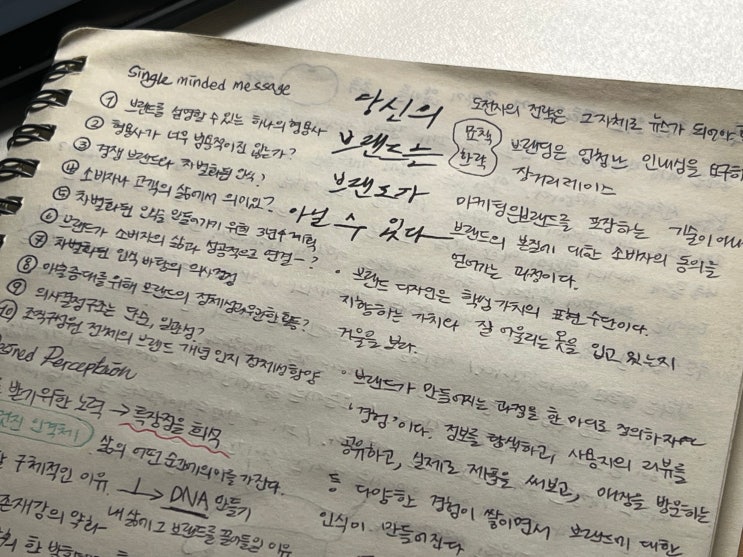 Single minded message
① 브랜드를 설명할 수 있는 하나의 형용사
② 형용사가 너무 범용적이진 않는가?
③ 경쟁 브랜드와 차별화된 인식?
④ 소비자나 고객의 삶에서 의미있는?
⑤ 차별화된 인식을 만들어가기 위한 3년 계획
⑥ 브랜드가 소비자의 삶과 성공적으로 연결-?
⑦ 차별화된 인식 바탕의 의사결정
⑧ 매출증대를 위해 브랜드의 정체성과 무관한 활동?
⑨ 의사결정구조는 단순, 일관성?
⑩ 조직구성원 전체의 브랜드 개념 인지 정체성 함양
Perception
받기위한 노력 → 특장점을 희석
인격체!
삶의 어떤 순간에 의미를 가진다.
구체적인 이유.
→ DNA 만들기
존재감의 약화
내 삶에 그 브랜드를 끌어들일 이유
당신의
브랜드는
브랜드가
아닐 수 있다
도전자의 전략은 그 자체로 뉴스가 되어야
브랜딩은 엄청난 인내심을
장거리 레이스
마케팅은 브랜드를 포장하는 기술이
브랜드의 본질에 대한 소비자의 동의를
얻어가는 과정이다.
· 브랜드 디자인은 핵심가치의 표현 수단이다.
지향하는 가치와 잘 어울리는 옷을 입고 있는지
거울을 보라.
· 브랜드가 만들어지는 과정을 한 마디로 정의하자면
'경험'이다. 정보를 탐색하고, 사용자의 리뷰를
공유하고, 실제로 제품을 써보고, 매장을 방문하는
등 다양한 경험이 쌓이면서 브랜드에 대한
인식이 만들어진다